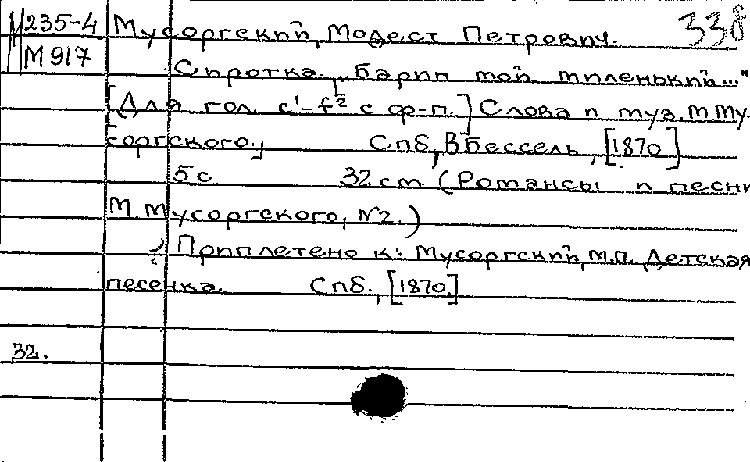 М235-4 Мусоргский, Модест Петрович. 338
М917
Сиротка. „Барин мой миленький..."
[Для гол. c¹-f² с ф-п.] Слова и муз. М Му-
соргского. Спб, В Бессель, [1870]
5 с 32 cm (Романсы и песни
М. Мусоргского, №2.)
Приплетено к: Мусоргский, М.П. Детская
песенка. Спб., [1870.]
32.